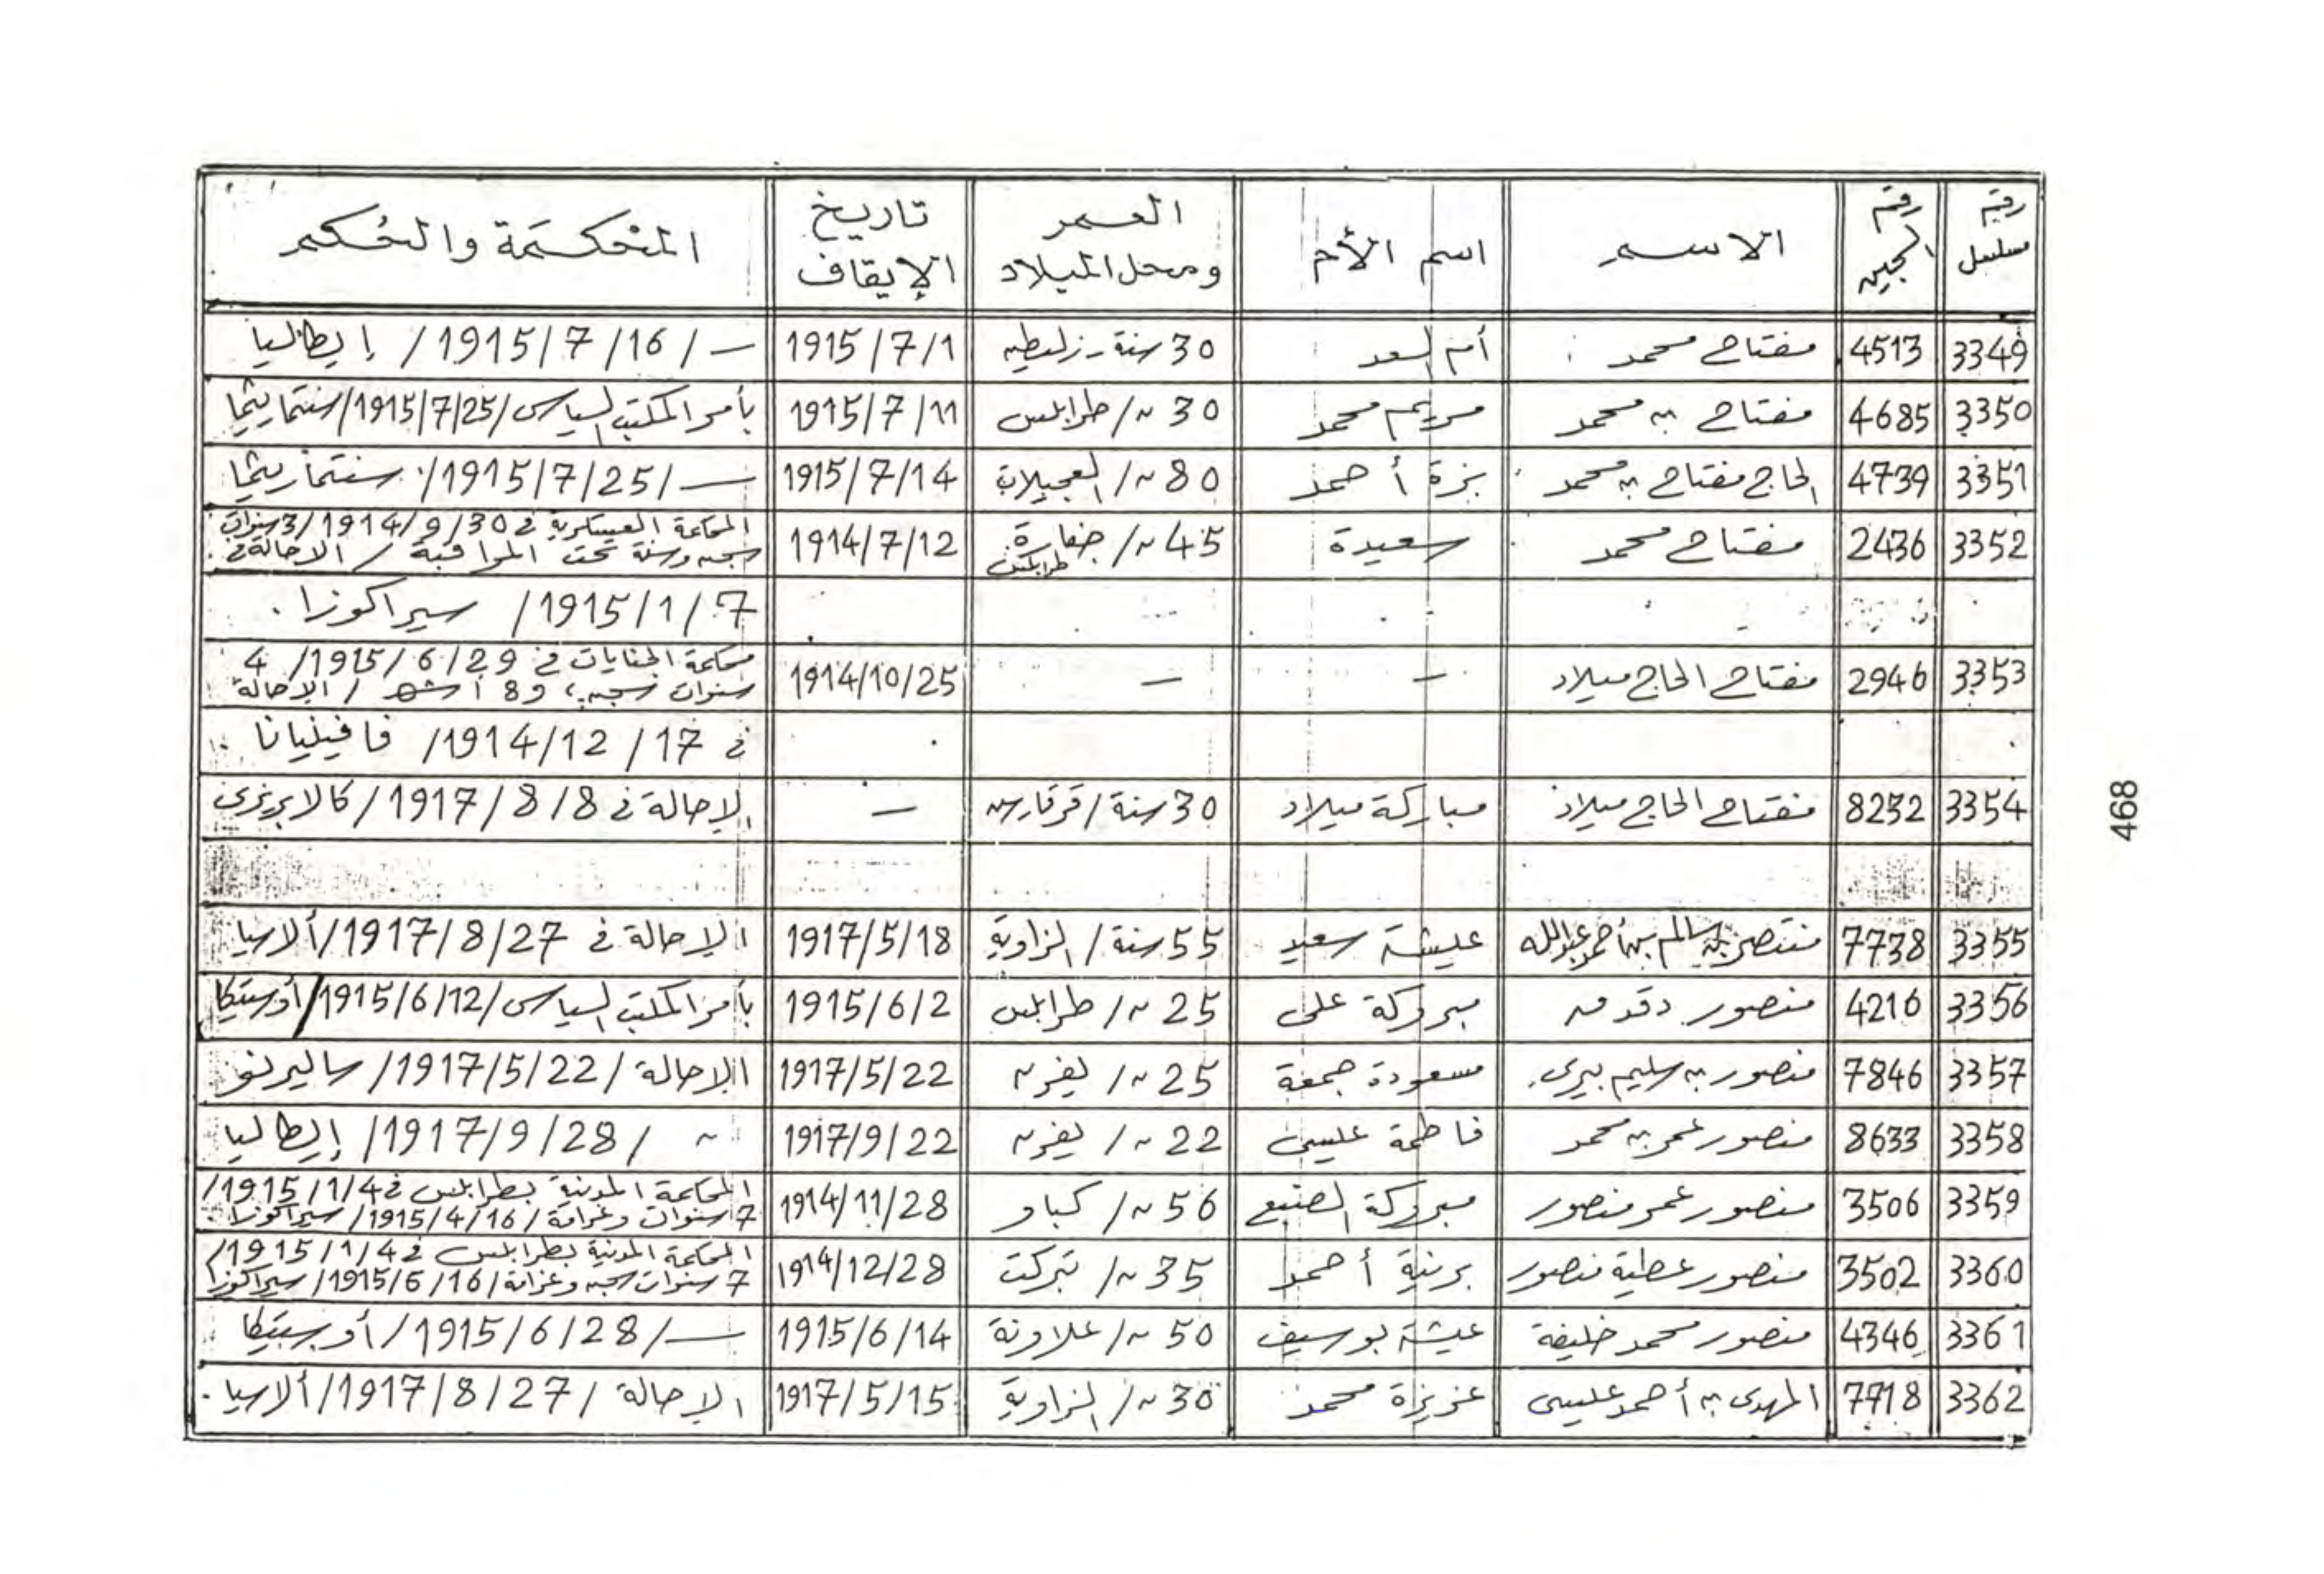 رقم مسلسل | رقم السجين | الاسم | اسم الأم | العمر ومحل الميلاد | تاريخ الإيقاف | المحكمة والحكم
3349 | 4513 | مفتاح محمد | أم السعد | 30 سنة - زليطن | 1915/7/1 | — / 1915/7/16 / إيطاليا
3350 | 4685 | مفتاح بن محمد | مريم محمد | 30 ~ / طرابلس | 1915/7/11 | بأمر المكتب السياسى / 1915/7/25 / سنتماريثما
3351 | 4739 | الحاج مفتاح بن محمد | بزة أحمد | 80 ~ / العجيلات | 1915/7/14 | — / 1915/7/25 / سنتماريثما
3352 | 2436 | مفتاح محمد | سعيدة | 45 ~ / جفارة طرابلس | 1914/7/12 | المحكمة العسكرية في 1914/9/30 / 3 سنوات
سجن وسنة تحت المراقبة / الاحالة في
1915/1/7 / سيراكوزا .
3353 | 2946 | مفتاح الحاج ميلاد | — | — | 1914/10/25 | محكمة الجنايات في 1915/6/29 / 4
سنوات سجن، و8 أشهر / الإحالة
في 1914/12/17 / فافينيانا
3354 | 8232 | مفتاح الحاج ميلاد | مباركة ميلاد | 30 سنة / قرقارش | — | الإحالة في 1917/8/8 / كالابريزى
3355 | 7738 | منتصر بن سالم بن أحمد عبدالله | عليشة سعيد | 55 سنة / الزاوية | 1917/5/18 | الإحالة في 1917/8/27 / ألاسيا
3356 | 4216 | منصور دقدق | مبروكة على | 25 ~ / طرابلس | 1915/6/2 | بأمر المكتب السياسى / 1915/6/12 / أوستيكا
3357 | 7846 | منصور بن سليم بيرى | مسعودة جمعة | 25 ~ / يفرن | 1917/5/22 | الإحالة / 1917/5/22 / ساليرنو
3358 | 8633 | منصور عمر بن محمد | فاطمة عليسى | 22 ~ / يفرن | 1917/9/22 | ~ / 1917/9/28 / إيطاليا
3359 | 3506 | منصور عمر منصور | مبروكة الصنيع | 56 ~ / كباو | 1914/11/28 | المحكمة المدنية بطرابلس في 1915/1/4 /
7 سنوات وغرامة / 1915/4/16 / سيراكوزا .
3360 | 3502 | منصور عطية منصور | برنية أحمد | 35 ~ / تبركت | 1914/12/28 | المحكمة المدنية بطرابلس في 1915/1/4 /
7 سنوات سجن وغرامة / 1915/6/16 / سيراكوزا
3361 | 4346 | منصور محمد خليفة | عيشة بوسيف | 50 ~ / علاونة | 1915/6/14 | — / 1915/6/28 / أوستيكا
3362 | 7718 | المهدى بن أحمد عليسى | عزيزة محمد | 30 ~ / الزاوية | 1917/5/15 | الإحالة / 1917/8/27 / ألاسيا .
468